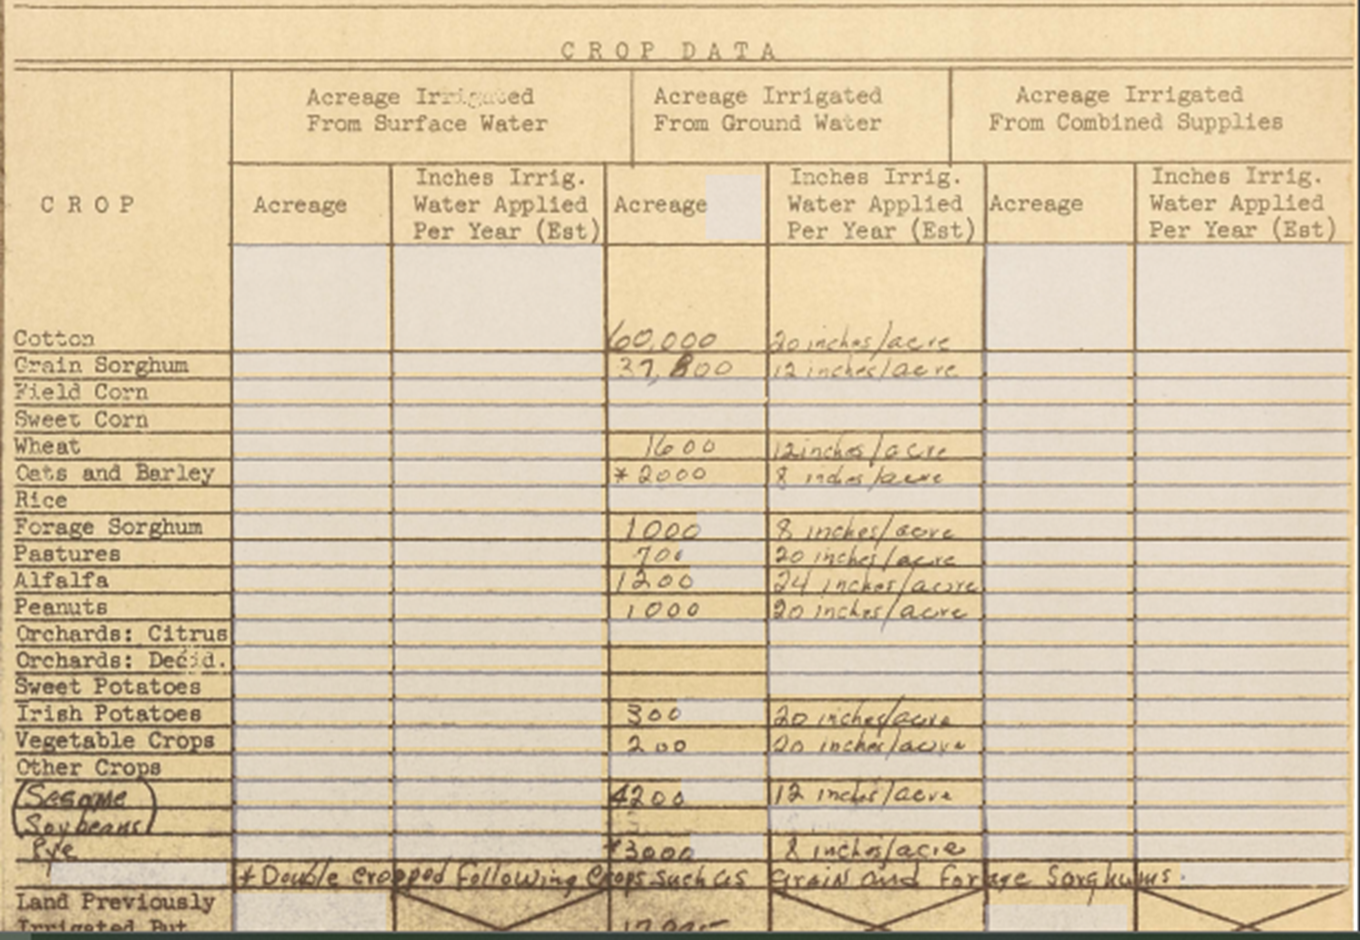 CROP DATA
Acreage Irrigated From Surface Water | Acreage Irrigated From Ground Water | Acreage Irrigated From Combined Supplies
CROP | Acreage | Inches Irrig. Water Applied Per Year (Est) | Acreage | Inches Irrig. Water Applied Per Year (Est) | Acreage | Inches Irrig. Water Applied Per Year (Est)
Cotton 60,000 20 inches/acre
Grain Sorghum 37,800 12 inches/acre
Field Corn
Sweet Corn
Wheat 1600 12 inches/acre
Oats and Barley *2000 8 inches/acre
Rice
Forage Sorghum 1000 8 inches/acre
Pastures 700 20 inches/acre
Alfalfa 1200 24 inches/acre
Peanuts 1000 20 inches/acre
Orchards: Citrus
Orchards: Decid.
Sweet Potatoes
Irish Potatoes 300 20 inches/acre
Vegetable Crops 200 20 inches/acre
Other Crops
Sesame 4200 12 inches/acre
Soybeans
Rye *3000 8 inches/acre
*Double cropped following crops such as Grain and Forage Sorghums.
Land Previously
Irrigated But